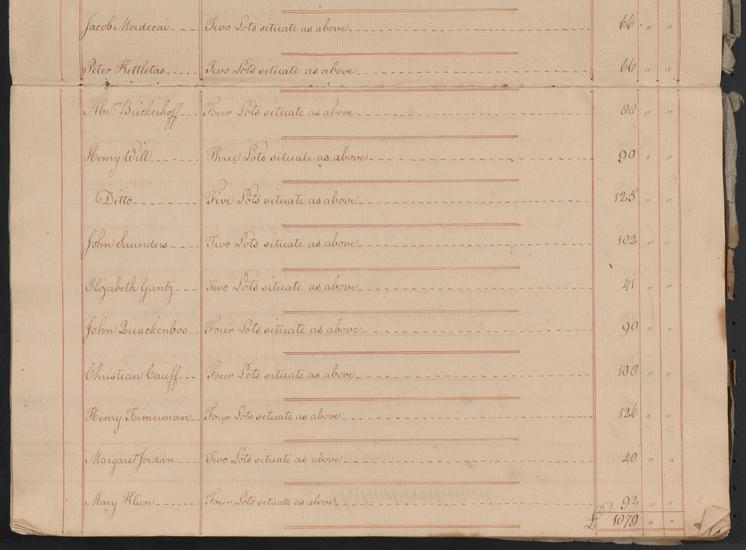 Jacob Mordecai Two Lots situate as above 66 " "
Peter Kettletas Two Lots situate as above 66 " "
Abrm. Brickerhoff Four Lots situate as above 80 " "
Henry Will Three Lots situate as above 90 " "
Ditto Five Lots situate as above 125 " "
John Saunders Two Lots situate as above 102 " "
Elizabeth Gantz Two Lots situate as above 41 " "
John Quackenbos Four Lots situate as above 90 " "
Christian Cauff Four Lots situate as above 108 " "
Henry Timerman Four Lots situate as above 126 " "
Margaret Jordan Two Lots situate as above 40 " "
Mary Klien Four Lots situate as above 92 " "
£ " "